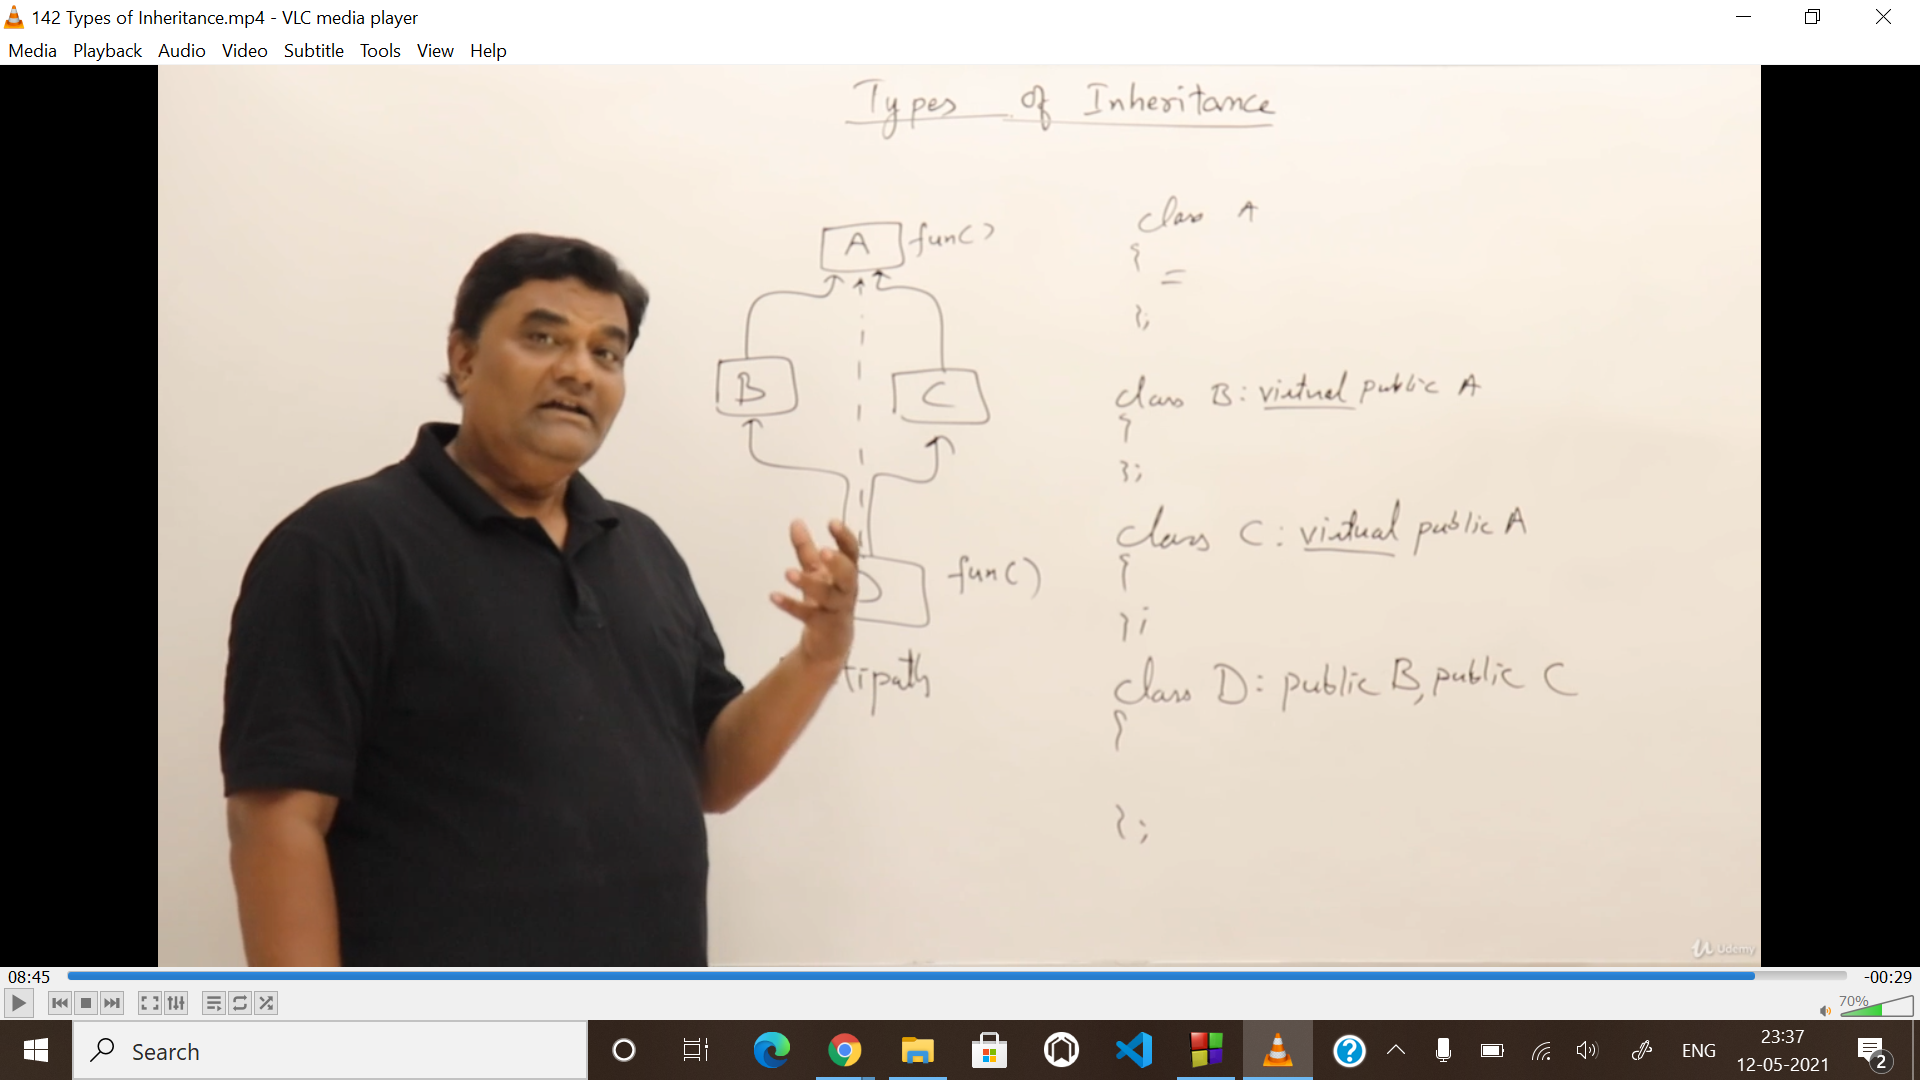 142 Types of Inheritance.mp4 - VLC media player
Media Playback Audio Video Subtitle Tools View Help
Types of Inheritance
A fun()
B C
D fun()
tipath
class A
{
=
};
class B: virtual public A
{
};
class C: virtual public A
{
};
class D: public B, public C
{
};
Udemy
08:45 -00:29
70%
Search
ENG
23:37
12-05-2021
2